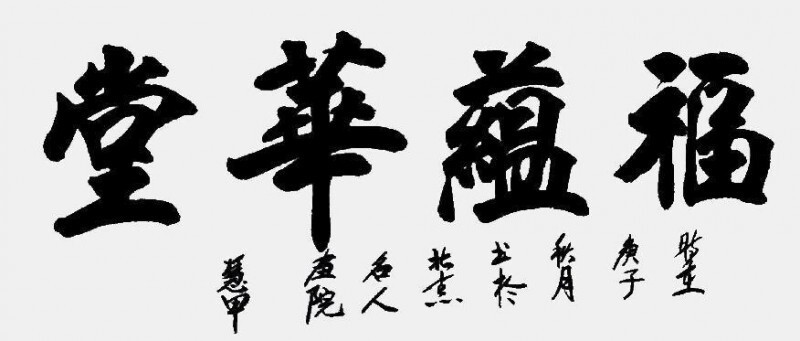 福蘊華堂
時在庚子秋月书於北京名人画院慧甲